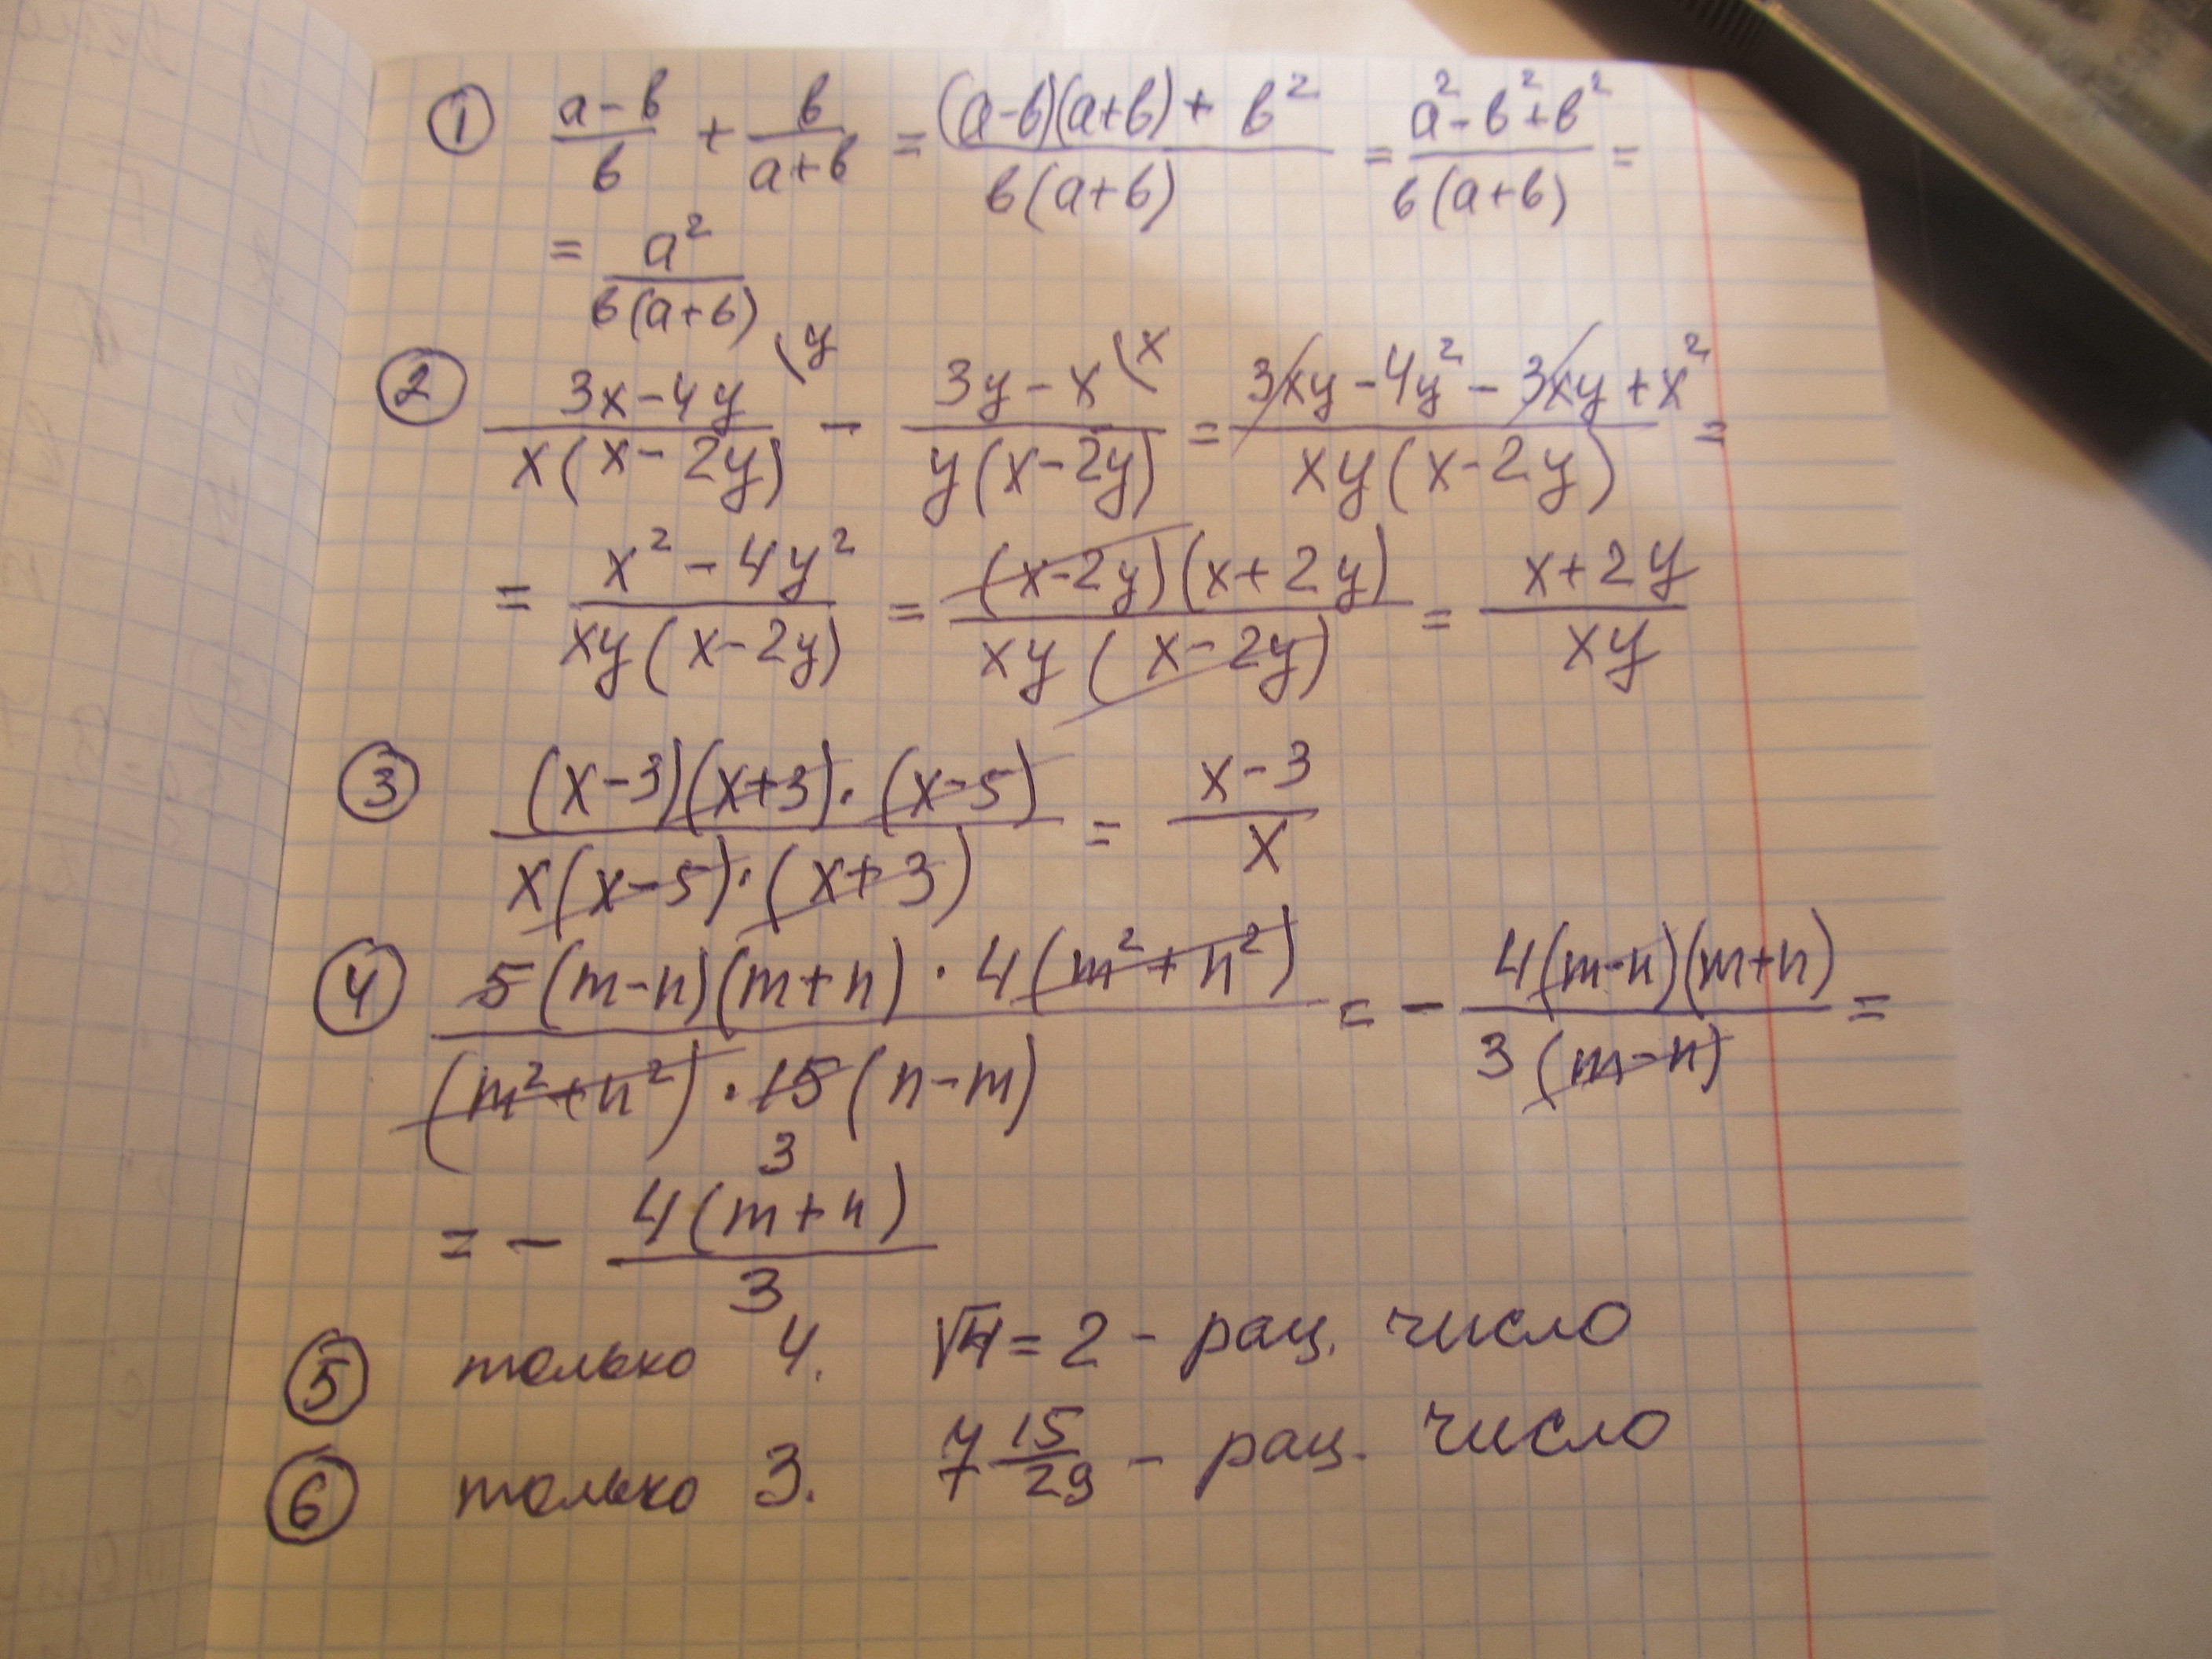 ① (a-b)/b + b/(a+b) = ((a-b)(a+b) + b²)/(b(a+b)) = (a²-b²+b²)/(b(a+b)) =
= a²/(b(a+b))
② (3x-4y)/(x(x-2y)) \y - (3y-x)/(y(x-2y)) \x = (3xy-4y²-3xy+x²)/(xy(x-2y)) =
= (x²-4y²)/(xy(x-2y)) = ((x-2y)(x+2y))/(xy(x-2y)) = (x+2y)/(xy)
③ ((x-3)(x+3)·(x-5))/(x(x-5)·(x+3)) = (x-3)/x
④ (5(m-n)(m+n)·4(m²+n²))/((m²+n²)·15(n-m)) = - (4(m-n)(m+n))/(3(m-n)) =
3
= - (4(m+n))/3
⑤ только 4. √4 = 2 - рац. число
⑥ только 3. 7 15/29 - рац. число